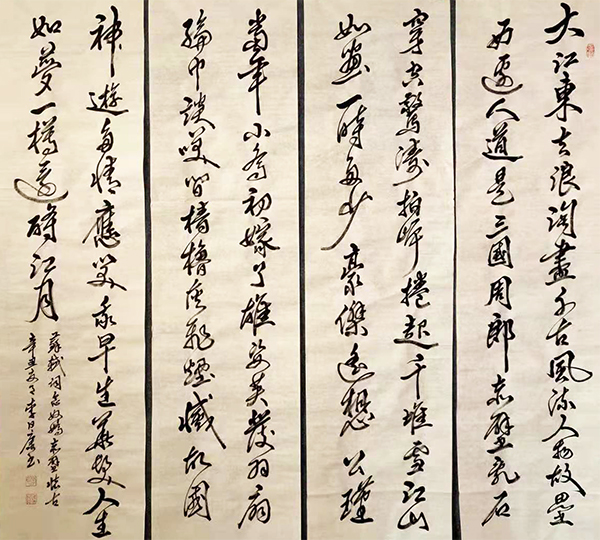 大江東去浪淘盡千古風流人物故壘
西邊人道是三國周郎赤壁亂石
穿空驚濤拍岸捲起千堆雪江山
如畫一時多少豪傑遙想公瑾
當年小喬初嫁了雄姿英發羽扇
綸巾談笑間檣櫓灰飛煙滅故國
神遊多情應笑我早生華髮人生
如夢一樽還酹江月
蘇軾詞念奴嬌赤壁懷古
辛丑李書